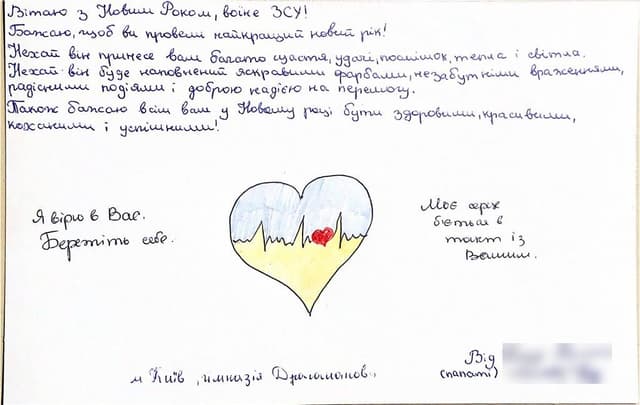 Вітаю з Новим Роком, воїне ЗСУ!
Бажаю, щоб ви провели найкращий новий рік!
Нехай він принесе вам багато щастя, удачі, посмішок, тепла і світла.
Нехай він буде наповнений яскравими фарбами, незабутніми враженнями,
радісними подіями і доброю надією на перемогу.
Також бажаю всім вам у Новому році бути здоровими, красивими,
коханими і успішними!
Я вірю в Вас.
Бережіть себе.
Моє серце
бється в
такт із
Вашим.
Від
м Київ, гімназія Драгоманов.